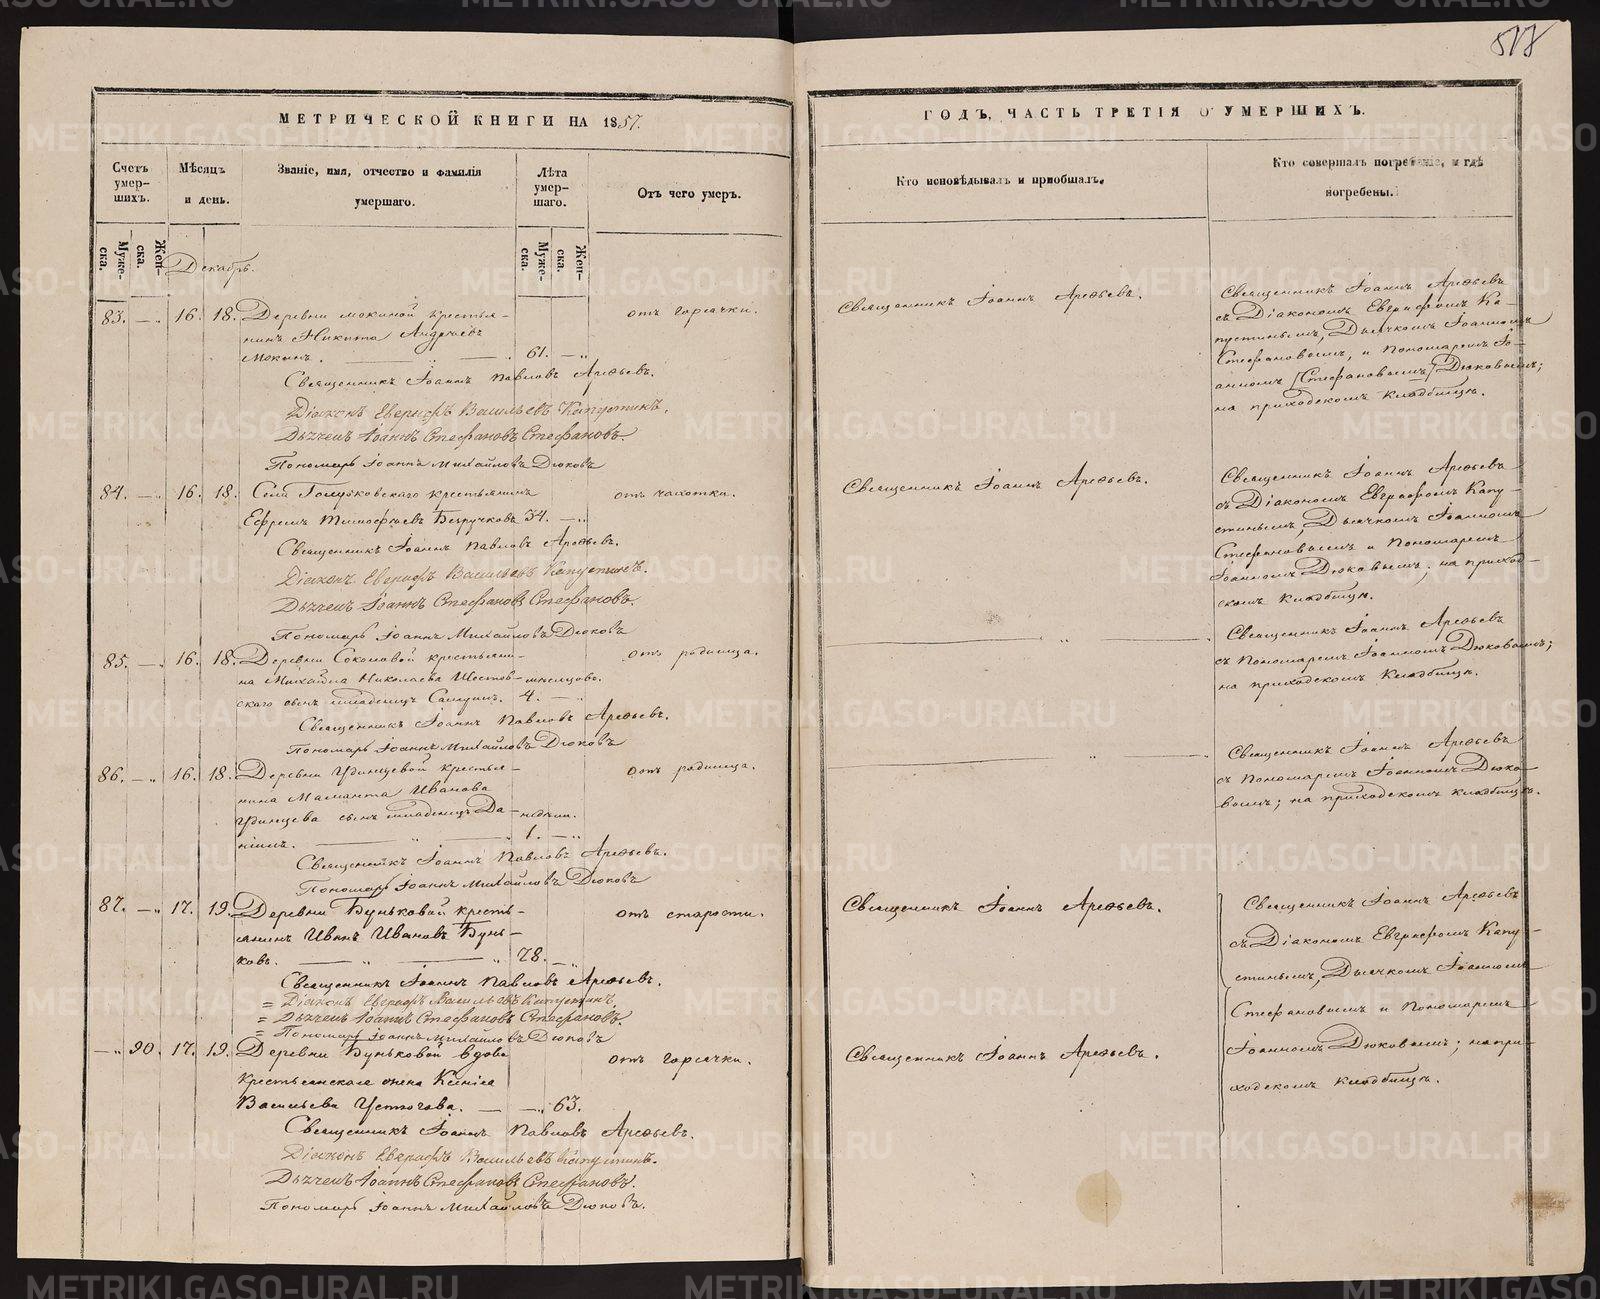 МЕТРИЧЕСКОЙ КНИГИ НА 1857.
Счетъ умер-шихъ.
Муже-ска.
Жен-ска.
Мѣсяцъ и день.
Званіе, имя, отчество и фамилія умершаго.
Лѣта умер-шаго.
Муже-ска.
Жен-ска.
Отъ чего умеръ.
Декабрь.
83. — „ 16. 18. Деревни Мокиной крестья-
нинъ Никита Андреевъ
Мокинъ. — „ — 61. — „
отъ горячки.
Священникъ Іоаннъ Павловъ Арефьевъ.
Діаконъ Евграфъ Васильевъ Капустинъ.
Дьячекъ Іоаннъ Стефановъ Стефановъ.
Пономарь Іоаннъ Михайловъ Дюковъ
84. — „ 16. 18. Села крестьянинъ
Ефремъ Тимофеевъ Безручковъ 34. — „
отъ чахотки.
Священникъ Іоаннъ Павловъ Арефьевъ.
Діаконъ Евграфъ Васильевъ Капустинъ.
Дьячекъ Іоаннъ Стефановъ Стефановъ.
Пономарь Іоаннъ Михайловъ Дюковъ
85. — „ 16. 18. Деревни Соколовой крестьяни-
на Михайла Николаева
сынъ младенецъ 4.
отъ родимца.
Священникъ Іоаннъ Павловъ Арефьевъ.
Пономарь Іоаннъ Михайловъ Дюковъ
86. — „ 16. 18. Деревни Удинцевой крестья-
нина Маманта Иванова
Удинцева сынъ младенецъ Да-
ніилъ. — „ — 1. — „
недѣли.
отъ родимца.
Священникъ Іоаннъ Павловъ Арефьевъ.
Пономарь Іоаннъ Михайловъ Дюковъ
87. — „ 17. 19. Деревни Буньковой кресть-
янинъ Иванъ Ивановъ Бунь-
ковъ. — „ — „ 78. — „
отъ старости.
Священникъ Іоаннъ Павловъ Арефьевъ.
= Діаконъ Евграфъ Васильевъ Капустинъ.
= Дьячекъ Іоаннъ Стефановъ Стефановъ.
= Пономарь Іоаннъ Михайловъ Дюковъ
— „ 90. 17. 19. Деревни Буньковой вдова
крестьянская жена Ксенія
Васильева Устюгова. — — „ 63.
отъ горячки.
Священникъ Іоаннъ Павловъ Арефьевъ.
Діаконъ Евграфъ Васильевъ Капустинъ.
Дьячекъ Іоаннъ Стефановъ Стефановъ.
Пономарь Іоаннъ Михайловъ Дюковъ.
ГОДЪ, ЧАСТЬ ТРЕТІЯ О УМЕРШИХЪ.
Кто исповѣдывалъ и пріобщалъ.
Кто совершалъ погребеніе, и гдѣ
погребены.
Священникъ Іоаннъ Арефьевъ.
Священникъ Іоаннъ Арефьевъ
съ Діакономъ Евграфомъ Ка-
пустинымъ, Дьячкомъ Іоанномъ
Стефановымъ, и Пономаремъ Іо-
анномъ [Стефановымъ] Дюковымъ;
на приходскомъ кладбищѣ.
Священникъ Іоаннъ Арефьевъ.
Священникъ Іоаннъ Арефьевъ
съ Діакономъ Евграфомъ Капу-
стинымъ, Дьячкомъ Іоанномъ
Стефановымъ и Пономаремъ
Іоанномъ Дюковымъ; на приход-
скомъ кладбищѣ.
Священникъ Іоаннъ Арефьевъ
съ Пономаремъ Іоанномъ Дюковымъ;
на приходскомъ кладбищѣ.
Священникъ Іоаннъ Арефьевъ
съ Пономаремъ Іоанномъ Дюко-
вымъ; на приходскомъ кладбищѣ.
Священникъ Іоаннъ Арефьевъ.
Священникъ Іоаннъ Арефьевъ.
Священникъ Іоаннъ Арефьевъ
съ Діакономъ Евграфомъ Капу-
стинымъ, Дьячкомъ Іоанномъ
Стефановымъ и Пономаремъ
Іоанномъ Дюковымъ; на при-
ходскомъ кладбищѣ.
METRIKI.GASO-URAL.RU